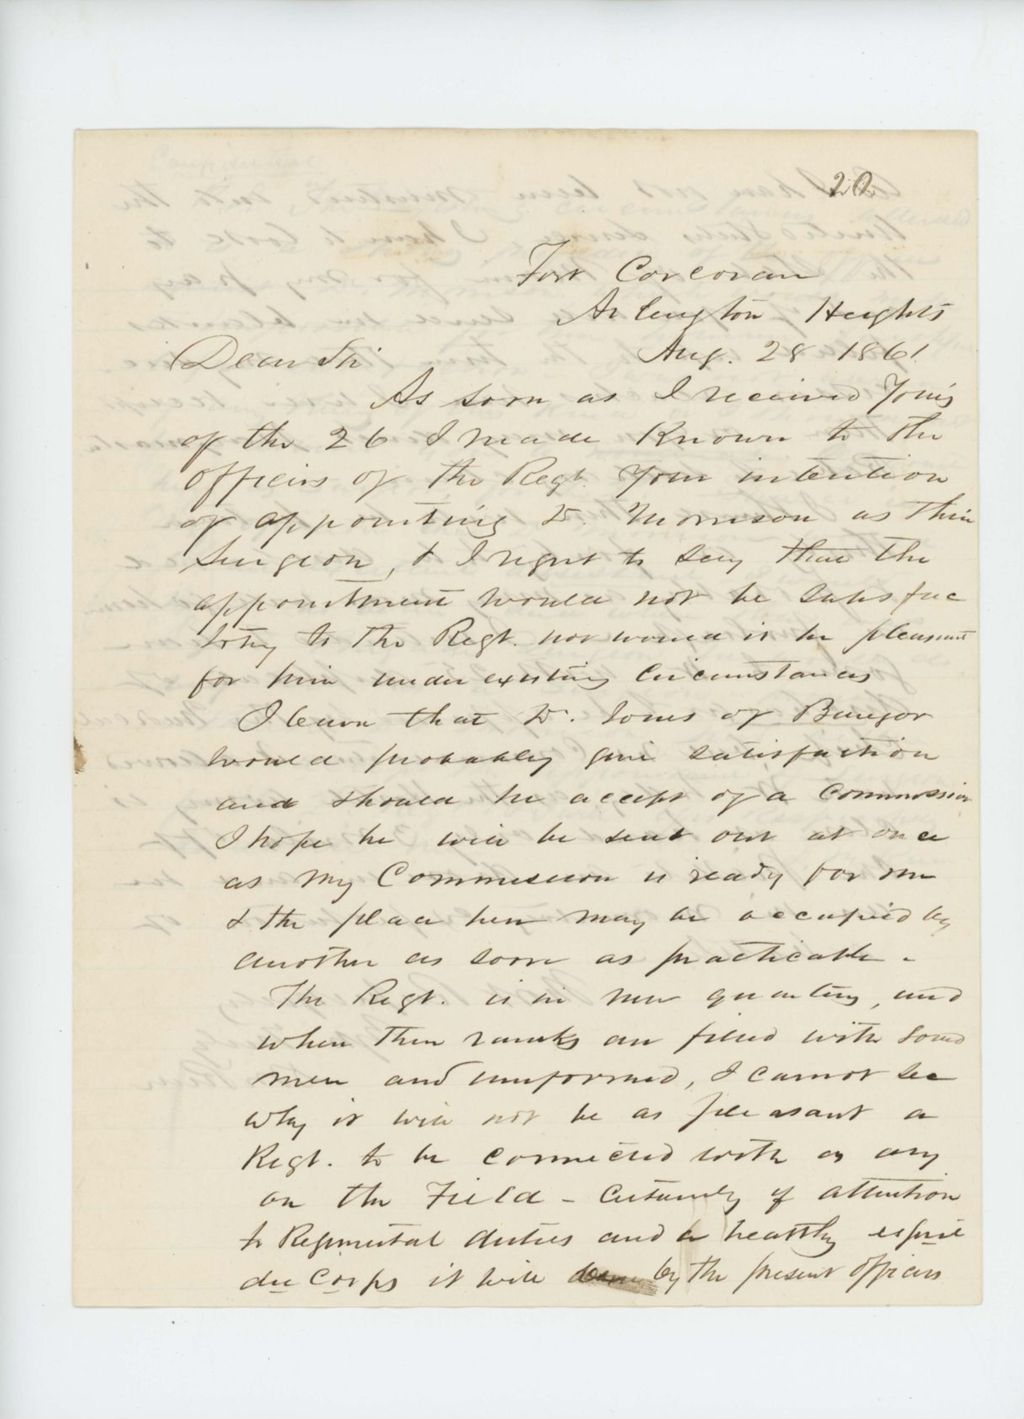 20
Fort Corcoran
Arlington Heights
Aug. 28 1861
Dear Sir
As soon as I received Yours
of the 26 I made Known to the
officers of the Regt. Your intention
of appointing Dr. Morrison as their
Surgeon, & I regret to say that the
appointment would not be satisfac
tory to the Regt. nor would it be pleasant
for him under existing circumstances
I learn that Dr. Jones of Bangor
would probably give satisfaction
and should he accept of a Commission
I hope he will be sent out at once
as my Commission is ready for me
& the place here may be occupied by
another as soon as practicable.
The Regt. is in new quarters, and
when their ranks are filled with sound
men and uniformed, I cannot see
why it will not be as pleasant a
Regt. to be connected with as any
on the Field - Certainly if attention
to Regimental duties and a healthy esprit
du Corps it will by the present officers